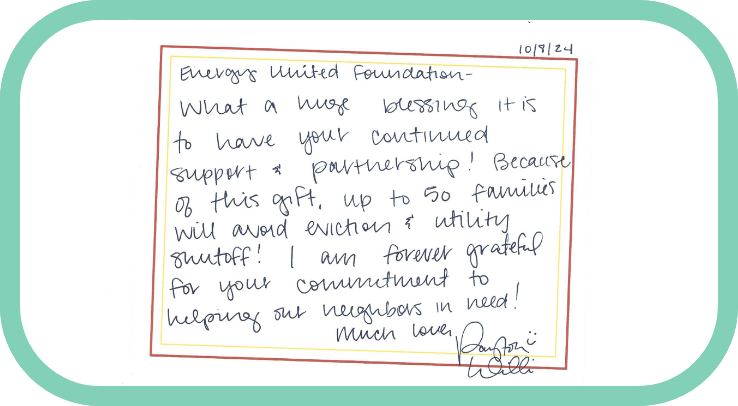 10/8/24
Energy United Foundation-
What a huge blessing it is
to have your continued
support & partnership! Because
of this gift, up to 50 families
will avoid eviction & utility
shutoff! I am forever grateful
for your commitment to
helping our neighbors in need!
Much love,